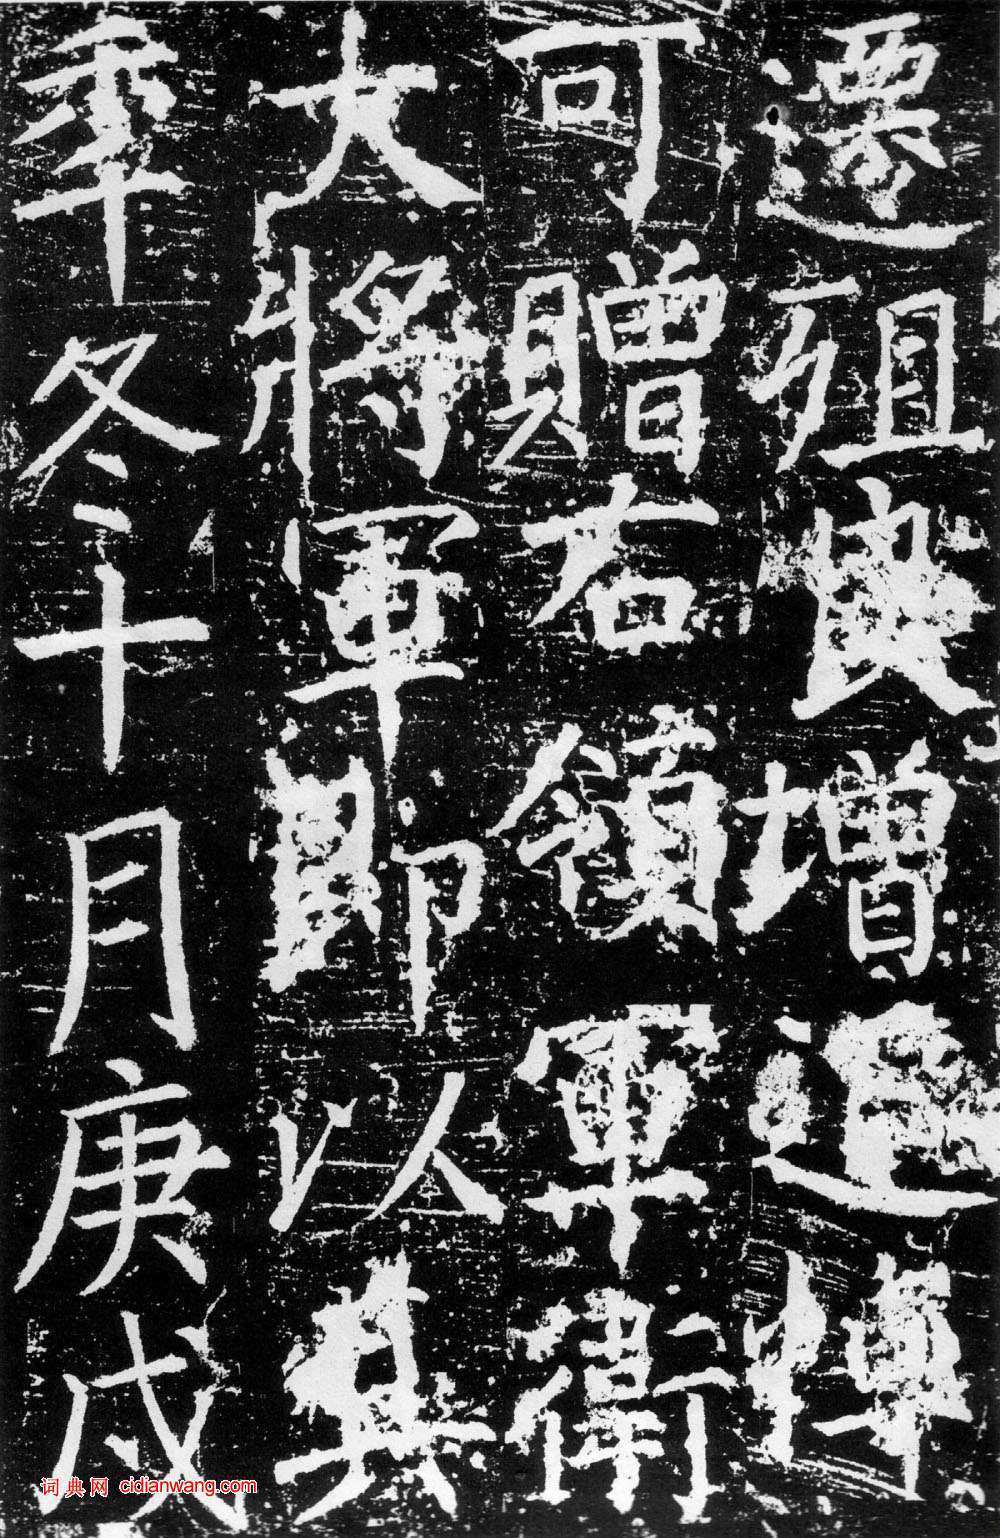 遷殂良增追悼
可贈右領軍衛
大將軍即以其
年冬十月庚戌
词典网 cidianwang.com